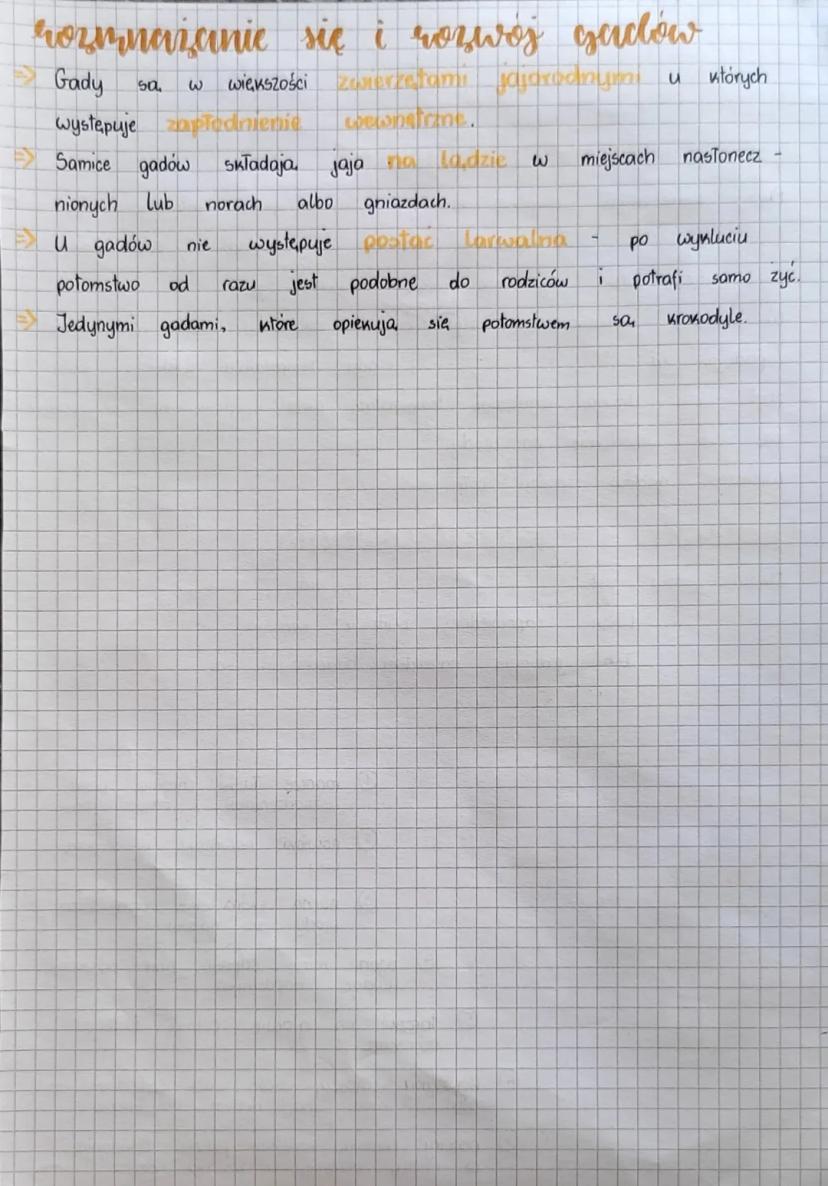 rozmnażanie się i rozwój gadów
=> Gady są w większości zwierzętami jajorodnymi u których
występuje zapłodnienie wewnętrzne.
=> Samice gadów składają jaja na lądzie w miejscach nasłonecz -
nionych lub norach albo gniazdach.
=> U gadów nie występuje postać larwalna - po wykluciu
potomstwo od razu jest podobne do rodziców i potrafi samo żyć.
=> Jedynymi gadami, które opiekują się potomstwem są krokodyle.